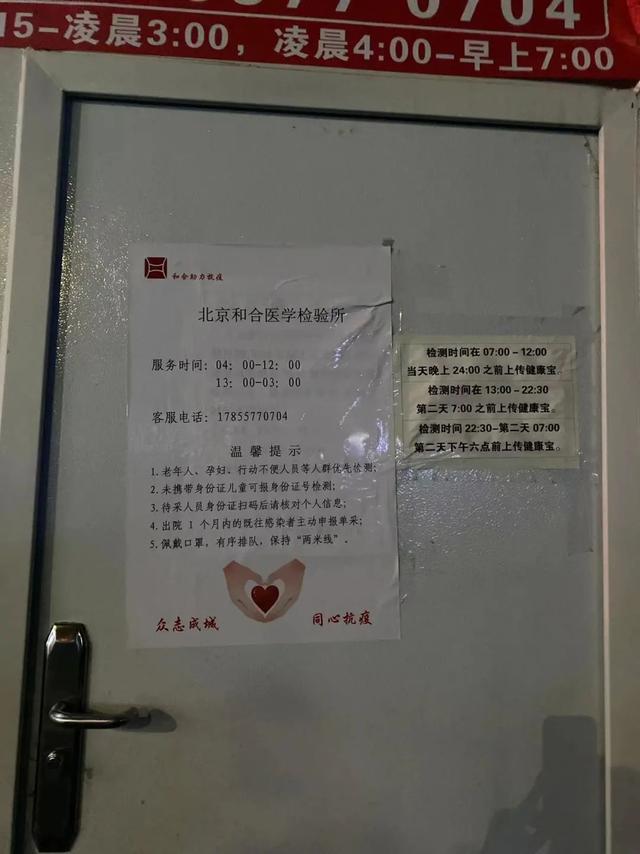 0704
15-凌晨3:00，凌晨4:00-早上7:00
和合助力抗疫
北京和合医学检验所
服务时间：04：00-12：00
13：00-03：00
客服电话：17855770704
温馨提示
1.老年人、孕妇、行动不便人员等人群优先检测；
2.未携带身份证儿童可报身份证号检测；
3.待采人员身份证扫码后请核对个人信息；
4.出院 1 个月内的既往感染者主动申报单采；
5.佩戴口罩，有序排队，保持“两米线”。
众志成城 同心抗疫
检测时间在 07:00－12:00
当天晚上 24:00 之前上传健康宝。
检测时间在 13:00－22:30
第二天 7:00 之前上传健康宝。
检测时间 22:30-第二天 07:00
第二天下午六点前上传健康宝。